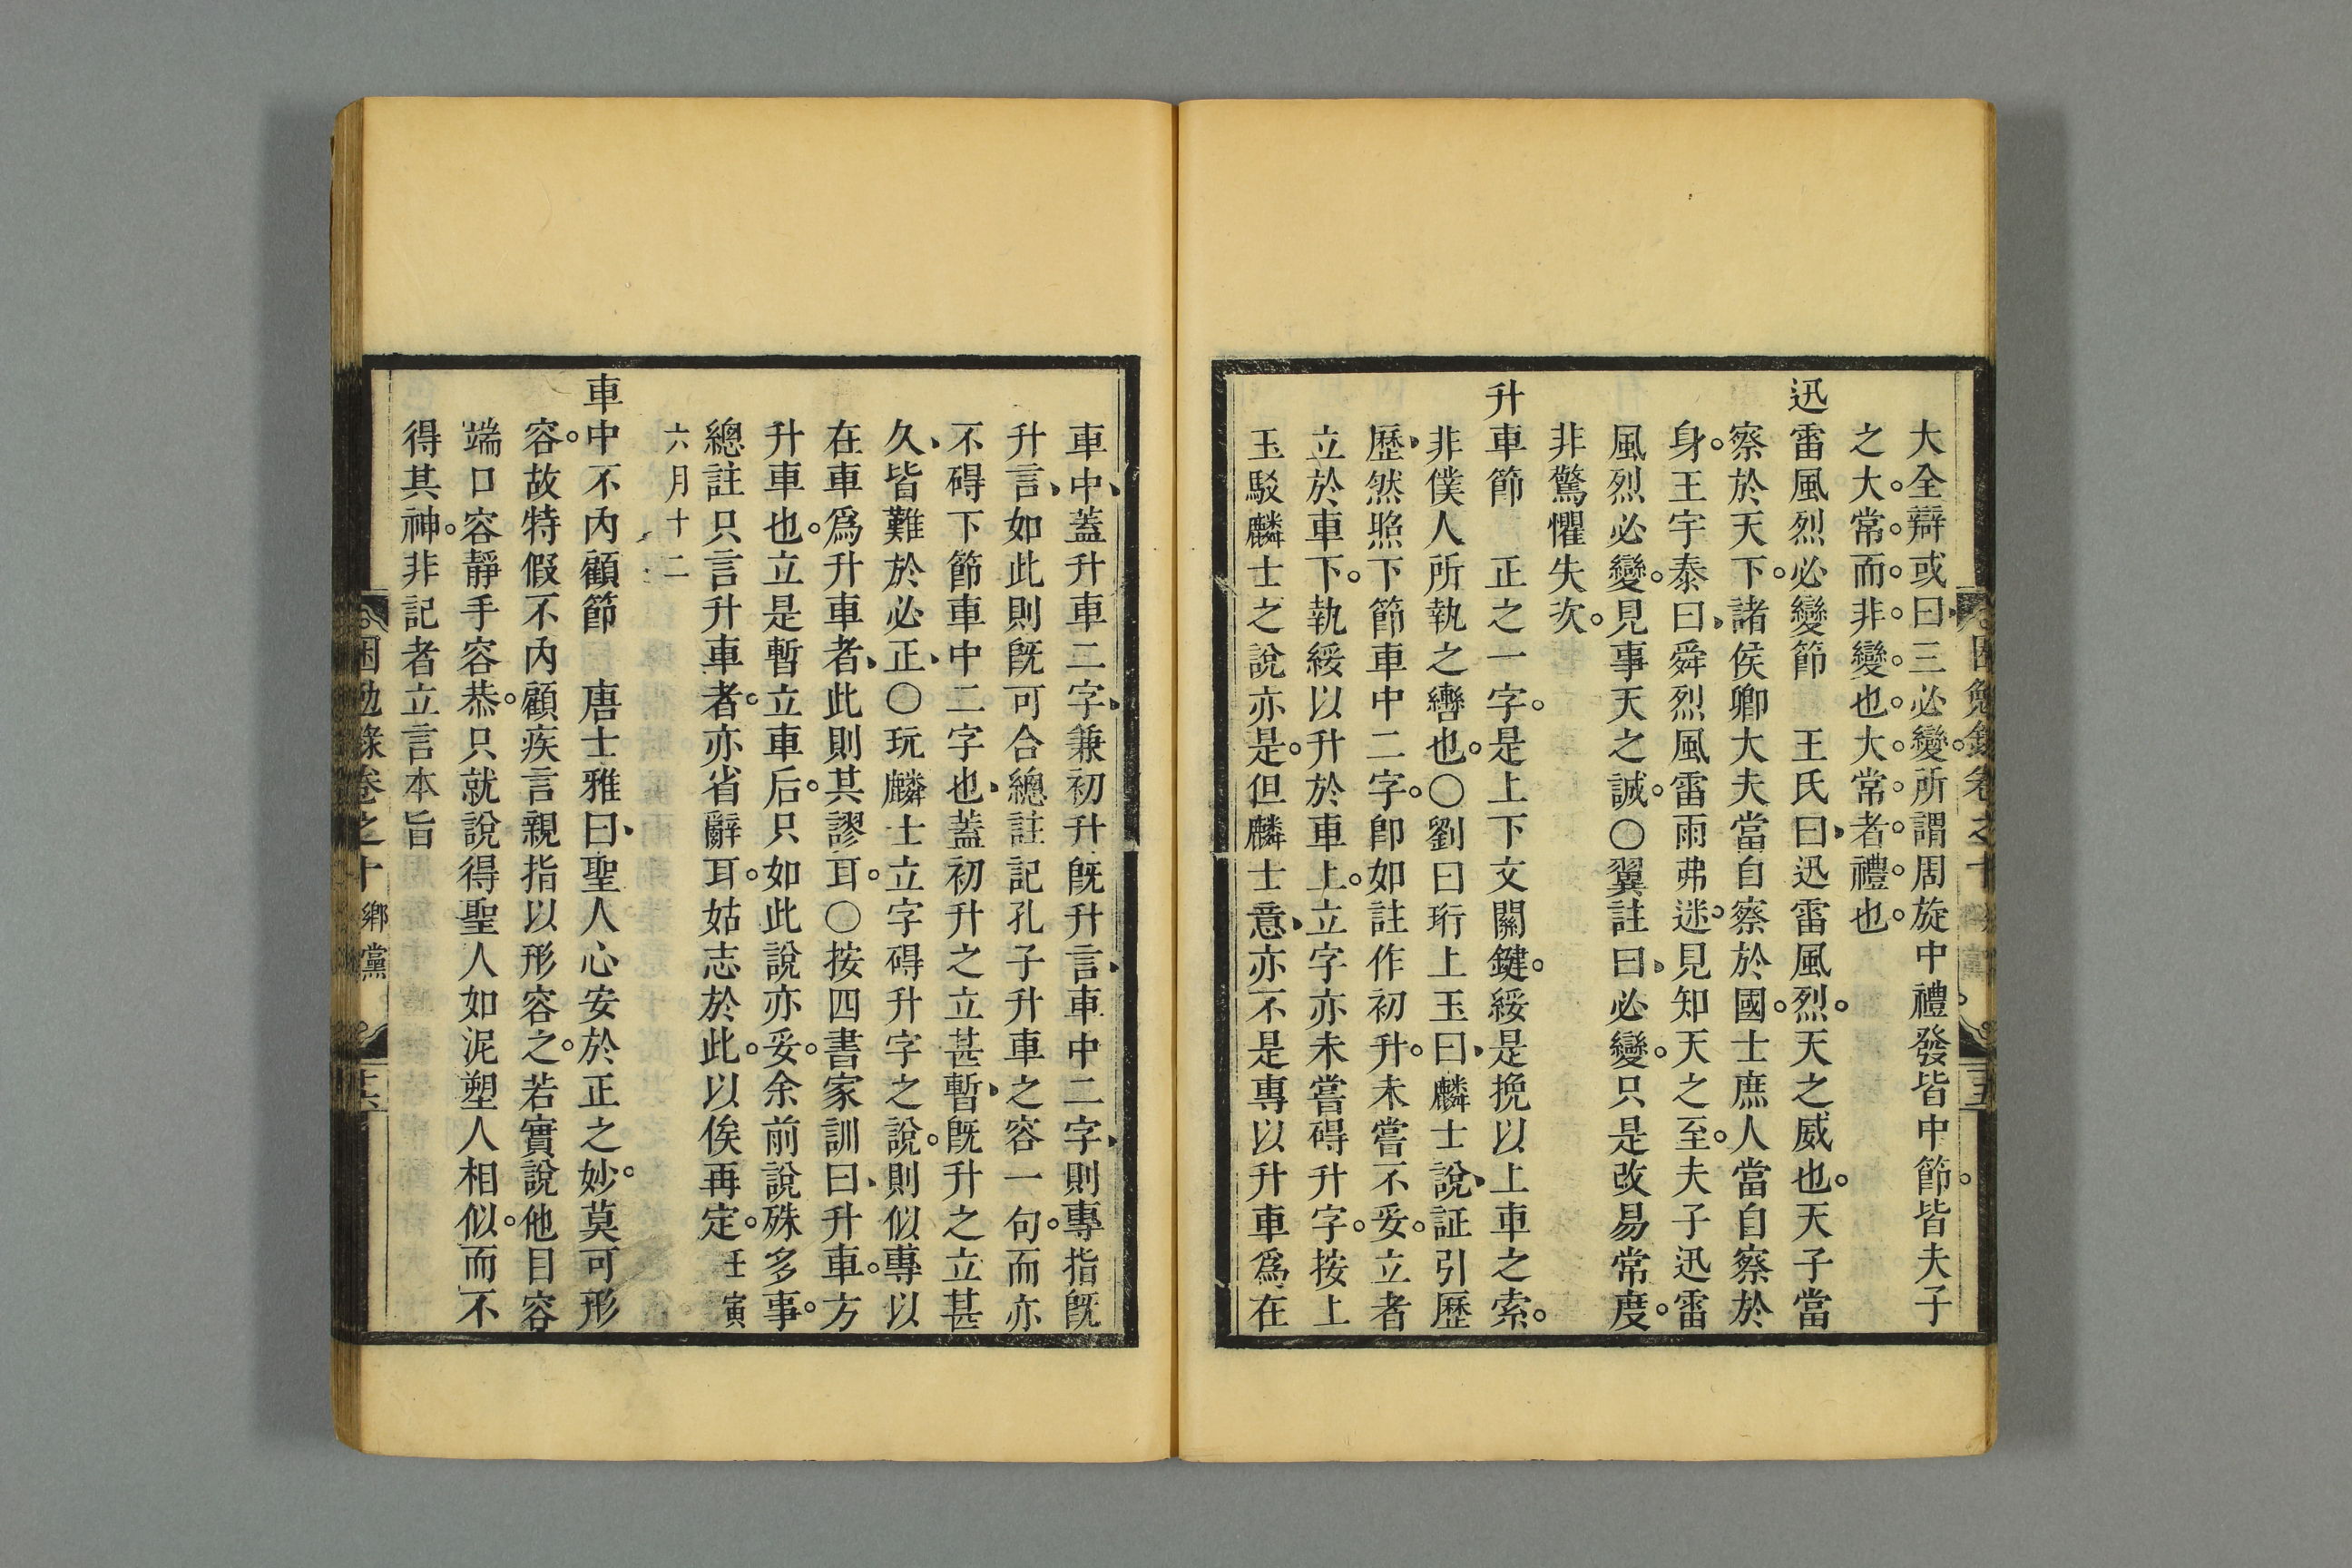 大全辯或曰三必變所謂周旋中禮發皆中節皆夫子
之大常而非變也大常者禮也
迅雷風烈必變節　王氏曰迅雷風烈天之威也天子當
察於天下諸侯卿大夫當自察於國士庶人當自察於
身王宇泰曰舜烈風雷雨弗迷見知天之至夫子迅雷
風烈必變見事天之誠○翼註曰必變只是改易常度
非驚懼失次
升車節　正之一字是上下文關鍵綏是挽以上車之索
非僕人所執之轡也○劉曰珩上玉曰麟士說証引歷
歷然照下節車中二字即如註作初升未嘗不妥立者
立於車下執綏以升於車上立字亦未嘗碍升字按上
玉駁麟士之說亦是但麟士意亦不是專以升車爲在
車中蓋升車二字兼初升既升言車中二字則專指既
升言如此則既可合總註記孔子升車之容一句而亦
不碍下節車中二字也蓋初升之立甚暫既升之立甚
久皆難於必正○玩麟士立字碍升字之說則似專以
在車爲升車者此則其謬耳○按四書家訓曰升車方
升車也立是暫立車后只如此說亦妥余前說殊多事
總註只言升車者亦省辭耳姑志於此以俟再定壬寅
六月十二
車中不內顧節　唐士雅曰聖人心安於正之妙莫可形
容故特假不內顧疾言親指以形容之若實說他目容
端口容靜手容恭只就說得聖人如泥塑人相似而不
得其神非記者立言本旨
困勉錄卷之十　鄉黨